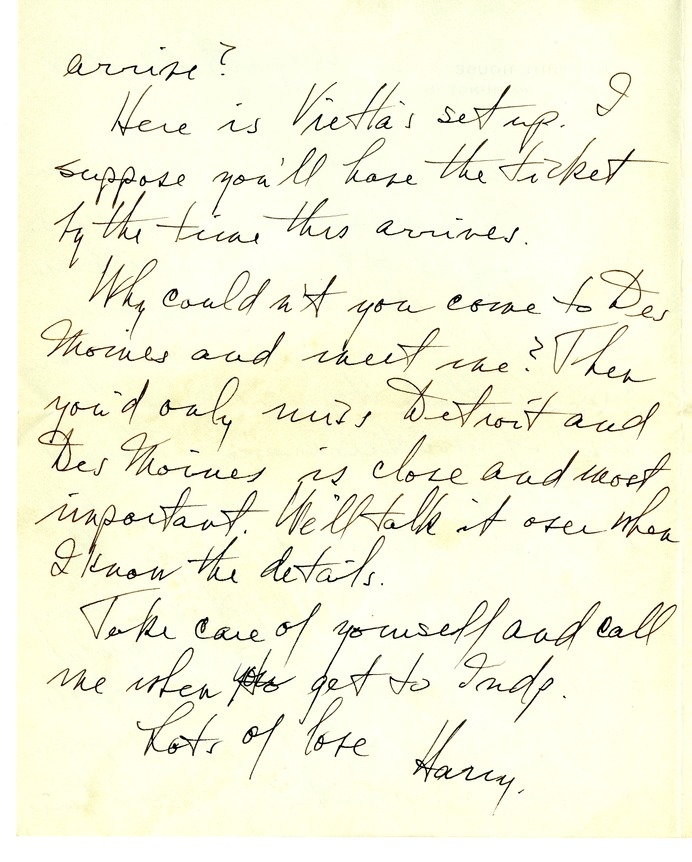 arrive?
Here is Vietta's set up. I
suppose you'll have the ticket
by the time this arrives.
Why couldn't you come to Des
Moines and meet me? Then
you'd only miss Detroit and
Des Moines is close and most
important. We'll talk it over when
I know the details.
Take care of yourself and call
me when get to Indp.
Lots of love
Harry.